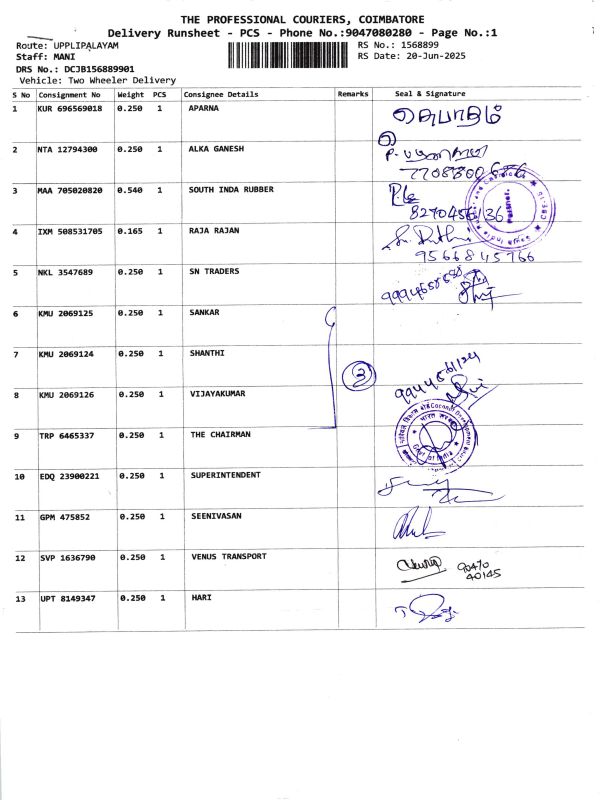 THE PROFESSIONAL COURIERS, COIMBATORE
Delivery Runsheet - PCS - Phone No.:9047080280 - Page No.:1
Route: UPPLIPALAYAM
Staff: MANI
DRS No.: DCJB156889901
Vehicle: Two Wheeler Delivery
RS No.: 1568899
RS Date: 20-Jun-2025
S No Consignment No Weight PCS Consignee Details Remarks Seal & Signature
1 KUR 696569018 0.250 1 APARNA
2 NTA 12794300 0.250 1 ALKA GANESH
3 MAA 705020820 0.540 1 SOUTH INDA RUBBER
8270456136
4 IXM 508531705 0.165 1 RAJA RAJAN
9566845766
5 NKL 3547689 0.250 1 SN TRADERS
6 KMU 2069125 0.250 1 SANKAR
7 KMU 2069124 0.250 1 SHANTHI
3
8 KMU 2069126 0.250 1 VIJAYAKUMAR
9 TRP 6465337 0.250 1 THE CHAIRMAN
10 EDQ 23900221 0.250 1 SUPERINTENDENT
11 GPM 475852 0.250 1 SEENIVASAN
12 SVP 1636790 0.250 1 VENUS TRANSPORT
90470
40145
13 UPT 8149347 0.250 1 HARI